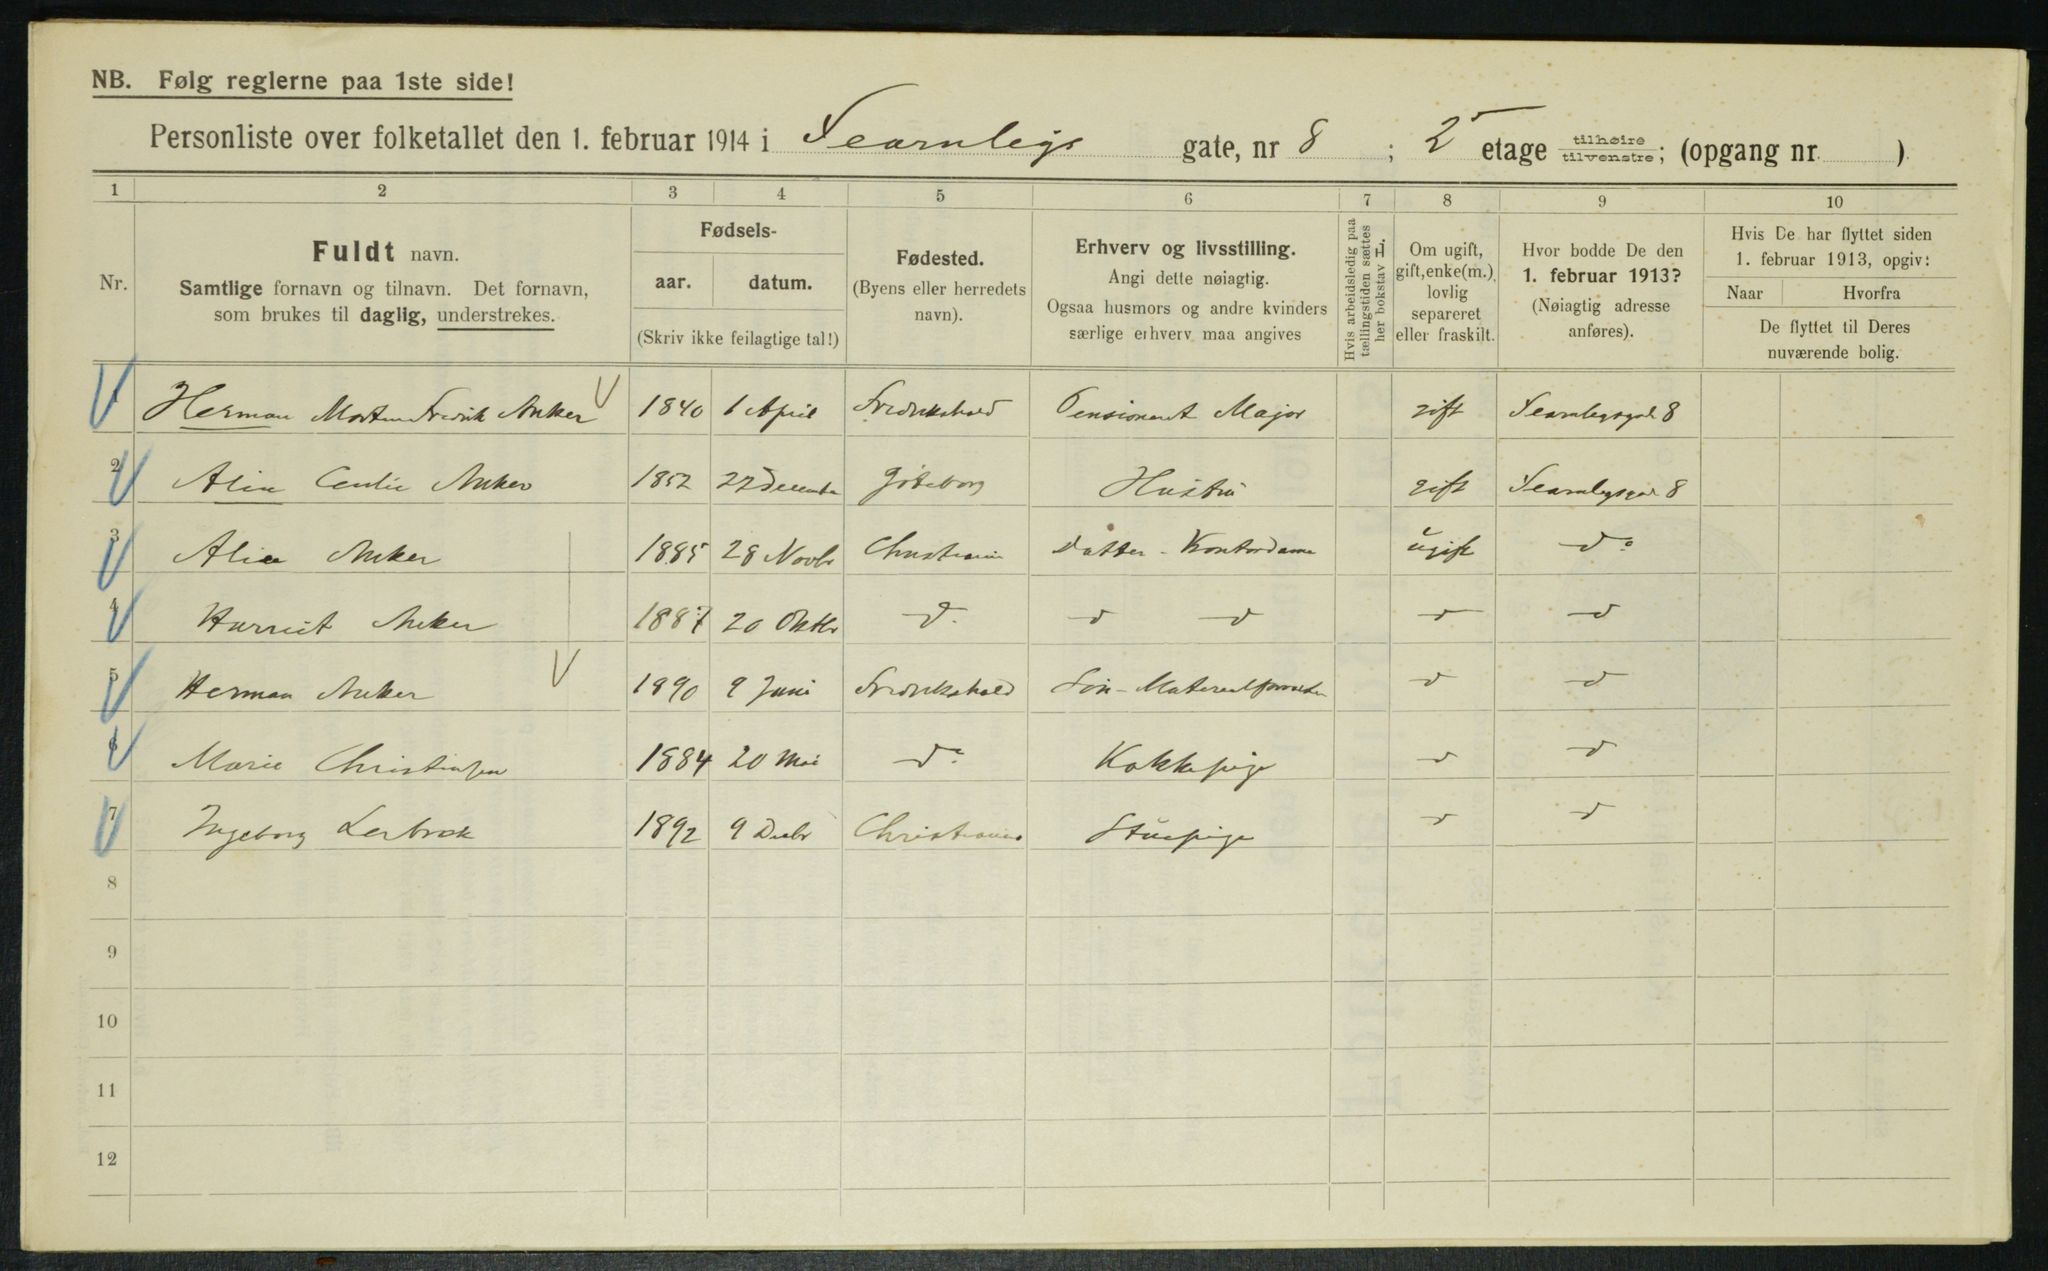 NB. Følg reglerne paa 1ste side!
Personliste over folketallet den 1. februar 1914 i Fearnleys gate, nr 8 ; 2 etage tilhøire tilvenstre; (opgang nr. )
1 2 3 4 5 6 7 8 9 10
Nr.
Fuldt navn.
Samtlige fornavn og tilnavn. Det fornavn,
som brukes til daglig, understrekes.
Fødsels-
aar. datum.
(Skriv ikke feilagtige tal!)
Fødested.
(Byens eller herredets
navn).
Erhverv og livsstilling.
Angi dette nøiagtig.
Ogsaa husmors og andre kvinders
særlige erhverv maa angives
Hvis arbeidsledig paa
tællingstiden sættes
her bokstav L.
Om ugift,
gift, enke(m.),
lovlig
separeret
eller fraskilt.
Hvor bodde De den
1. februar 1913?
(Nøiagtig adresse
anføres).
Hvis De har flyttet siden
1. februar 1913, opgiv:
Naar Hvorfra
De flyttet til Deres
nuværende bolig.
1 Herman Morten Fredrik Anker 1840 1 April Fredrikshald Pensioneret Major gift Fearnleysgade 8
2 Anker 1852 27 December Göteborg Hustru gift Fearnleysgad 8
3 Alice Anker 1885 28 Novbr Christiania Datter - Kontordame ugift do
4 Harriet Anker 1887 20 Oktbr do d d d d
5 Herman Anker 1890 9 Juni Fredrikshald Søn - Materialforvalter d d
6 Marie Christensen 1884 20 Mai do Kokkepige d d
7 Ingeborg Lerbrek 1892 9 Decbr Christiania Stuepige d d
8
9
10
11
12